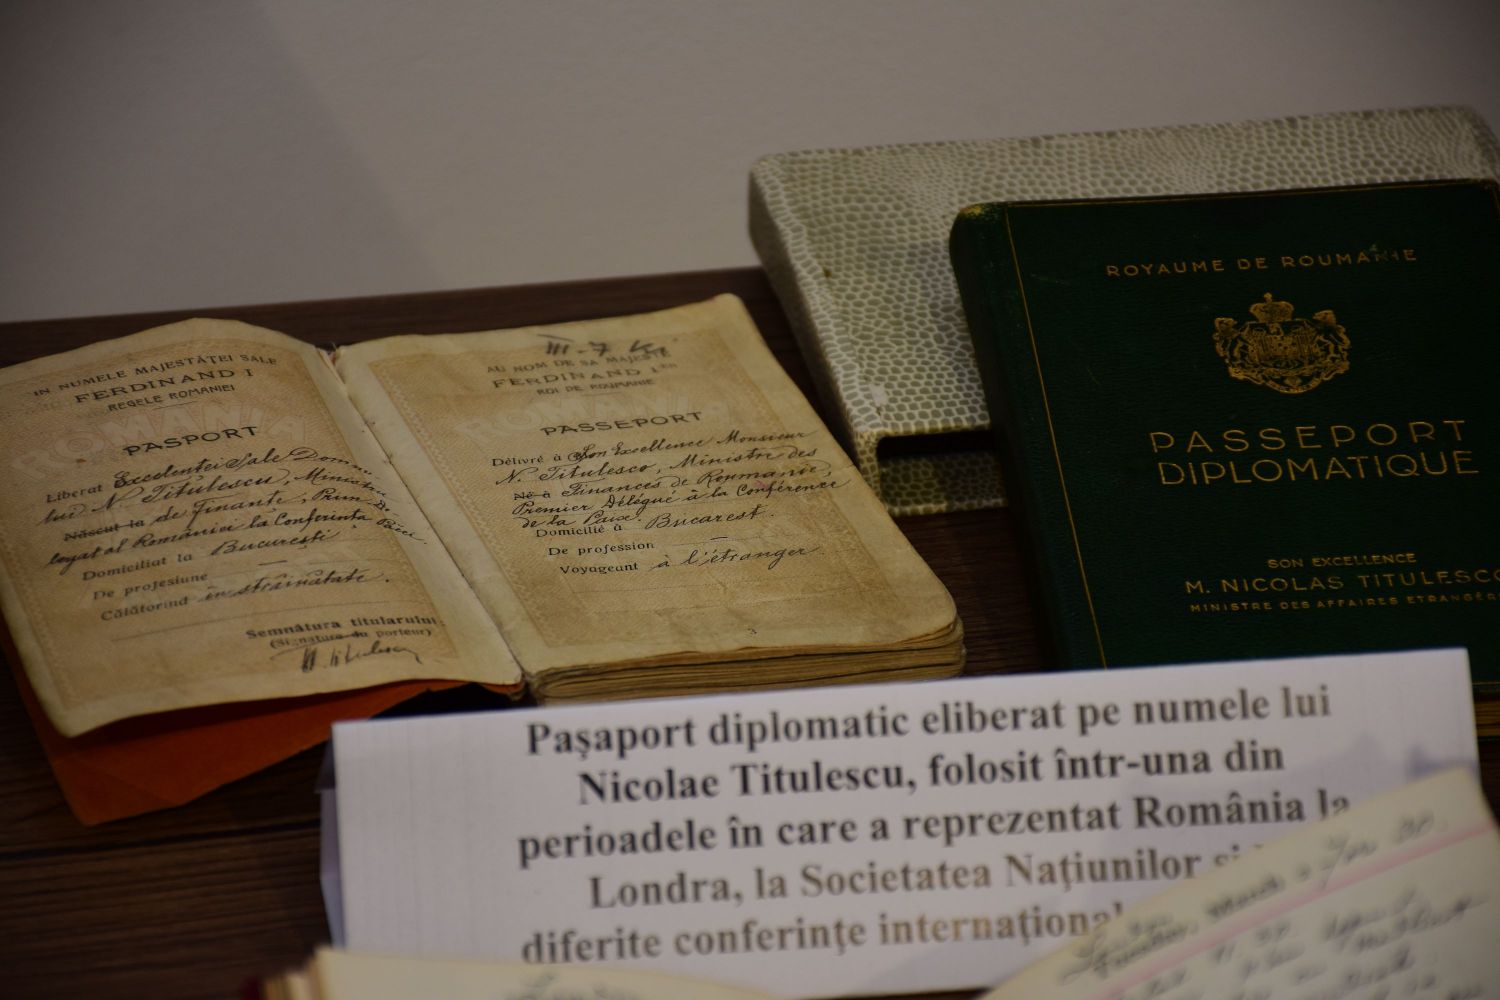 IN NUMELE MAJESTĂŢEI SALE
FERDINAND I
REGELE ROMANIEI
ROMANIA
PASPORT
Liberat Excelenţei Sale Domnu
lui N. Titulescu, Ministru
Născut la de Finanţe, Prim De-
legat al României la Conferinţa Păcei.
Domiciliat la Bucureşti.
De profesiune —
Călătorind în străinătate.
Semnătura titularului:
(Signature du porteur)
N. Titulescu
AU NOM DE SA MAJESTÉ
FERDINAND I er
ROI DE ROUMANIE
ROMANIA
PASSEPORT
Délivré à Son Excellence Monsieur
N. Titulesco, Ministre des
Né à Finances de Roumanie,
Premier Délégué à la Conférence
de la Paix.
Domicilié à Bucarest.
De profession —
Voyageant à l'étranger
3
ROYAUME DE ROUMANIE
PASSEPORT
DIPLOMATIQUE
SON EXCELLENCE
M. NICOLAS TITULESCO
MINISTRE DES AFFAIRES ETRANGÈR
Paşaport diplomatic eliberat pe numele lui
Nicolae Titulescu, folosit într-una din
perioadele în care a reprezentat România la
Londra, la Societatea Naţiunilor şi
diferite conferinţe internaţional